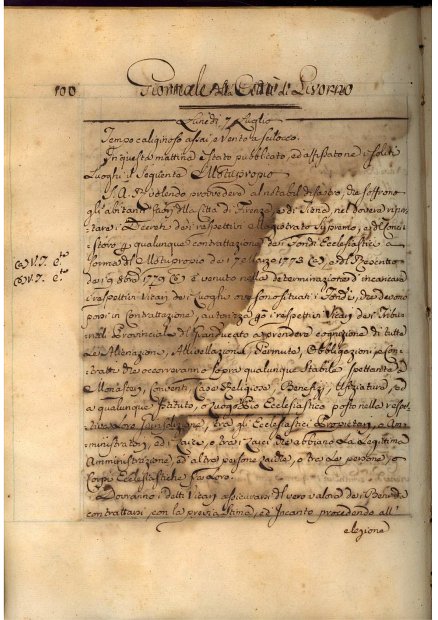 100
Giornale della Città di Livorno
Lunedì 7 Luglio
Tempo caliginoso assai, e vento a scilocco.
In questa mattina è stato pubblicato, ed affissato ne soliti
Luoghi il seguente Motuproprio
S. A. R. volendo provvedere al notabil disastro, che soffrono
gli abitanti fuori della città di Firenze, e di Siena nel dovere ripor-
tare i Decreti dei respettivi Magistrato Supremo, e di Conci-
storo p qualunque contrattazione dei Fondi Ecclesiastici a
forma del Motuproprio de 17 Marzo 1773 e del Rescritto
dei 9 8bre 1779 è venuto nella determinazione d'incaricare
i respettivi Vicarj dei Luoghi ove sono situati i Fondi, che devono
porsi in contrattazione, autorizza p i respettivi Vicarj dei Tribu-
nali Provinciali del Granducato a prendere cognizione di tutte
Le Alienazione, Allivellazioni, Permute, Obbligazioni, e Con-
tratti che occorreranno sopra qualunque Stabile spettante a
Monasterj, Conventi, Case Religiose, Benefizj, Ufiziatura, ed
a qualunque Istituto, o Luogo Pio Ecclesiastico posto nella respet-
tiva loro Giurisdizione, tra gli Ecclesiastici Proprietarj, o Am-
ministratori, ed i Laici, o tra i Laici che abbiano la Legittima
Amministrazione, ed altre persone Laiche, o tra Le persone, o
Corpi Ecclesiastiche fra loro.
Dovranno detti Vicarj assicurarsi del vero valore dei Beni da
contrattarsi, con la previa Stima, ed Incanto procedendo all'
elezione